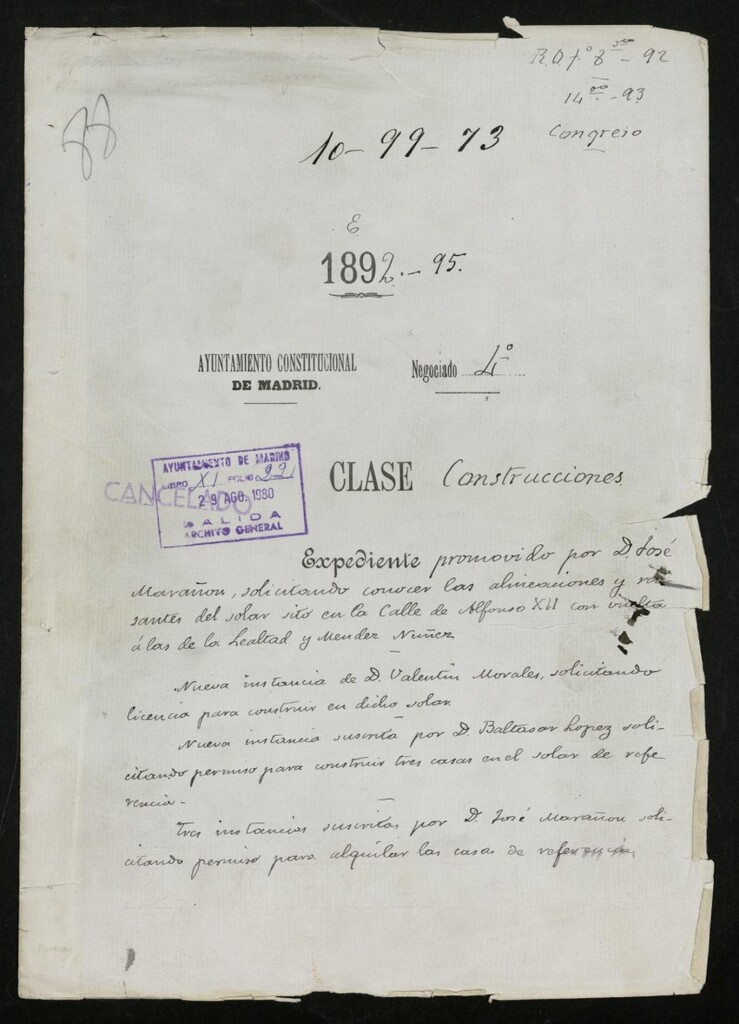 92
14 - 93
Congreso
10-99-73
E
1892.-95.
AYUNTAMIENTO CONSTITUCIONAL
DE MADRID.
Negociado 4º
AYUNTAMIENTO DE MADRID
LIBRO XI FOLIO 221
CANCELADO
29 AGO. 1980
SALIDA
ARCHIVO GENERAL
CLASE Construcciones
Expediente promovido por D. José
Marañon, solicitando conocer las alineaciones y ra-
santes del solar sito en la Calle de Alfonso XII con vuelta
á las de la Lealtad y Mendez Nuñez
Nueva instancia de D. Valentin Morales, solicitando
licencia para construir en dicho solar.
Nueva instancia suscrita por D. Baltasar Lopez soli-
citando permiso para construir tres casas en el solar de refe-
rencia.-
Tres instancias suscritas por D. José Marañon soli-
citando permiso para alquilar las casas de referencia